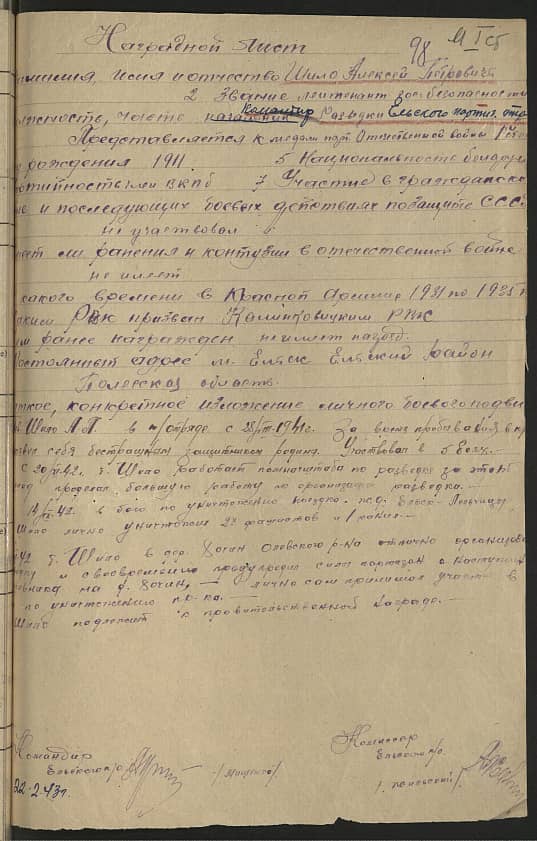 98
Наградной лист
амилия, имя и отчество Шило Алексей Петрович
2 Звание лейтенант гос. безопасности
лжность, часть командир разведки Ельского партиз. отр
Представляется к медали парт. Отечественной войны 1й
е рождения 1911 5 Национальность белару
ртийность ВКПб 7 Участие в гражданско
не и последующих боевых действиях по защите СССР
не участвовал
меет ли ранения и контузии в отечественной войне
не имеет
какого времени в Красной Армии 1931 по 1935
аким РВК призван Калинковицким РВК
ранее награжден не имеет наград
Постоянный адрес м. Ельск Ельский район
Полесская область
ткое, конкретное изложение личного боевого подви
Шило А.П. в п/отряде с 28/VIII-1941г. За время пребывания в
себя бесстрашным защитником родины. Участвовал в 5 боях.
С 20 42 г. Шило работает помначштаба по разведке за этот
проделал большую работу по организации разведки.
42. в бою по уничтожению поезда ж.д. Ельск-
Шило лично уничтожил 2х фашистов и 1 ранил.
42 г. Шило в дер. Хочин Олевского р-на отлично организова
и своевременно предупредил силы партизан о наступл
на д. Хочин, — лично сам принимал участие в
по уничтожению пр-ка. —
Шило подлежит к правительственной награде. —
Командир
Ельского п/о
Комиссар
Ельского п/о
22-2-43г.